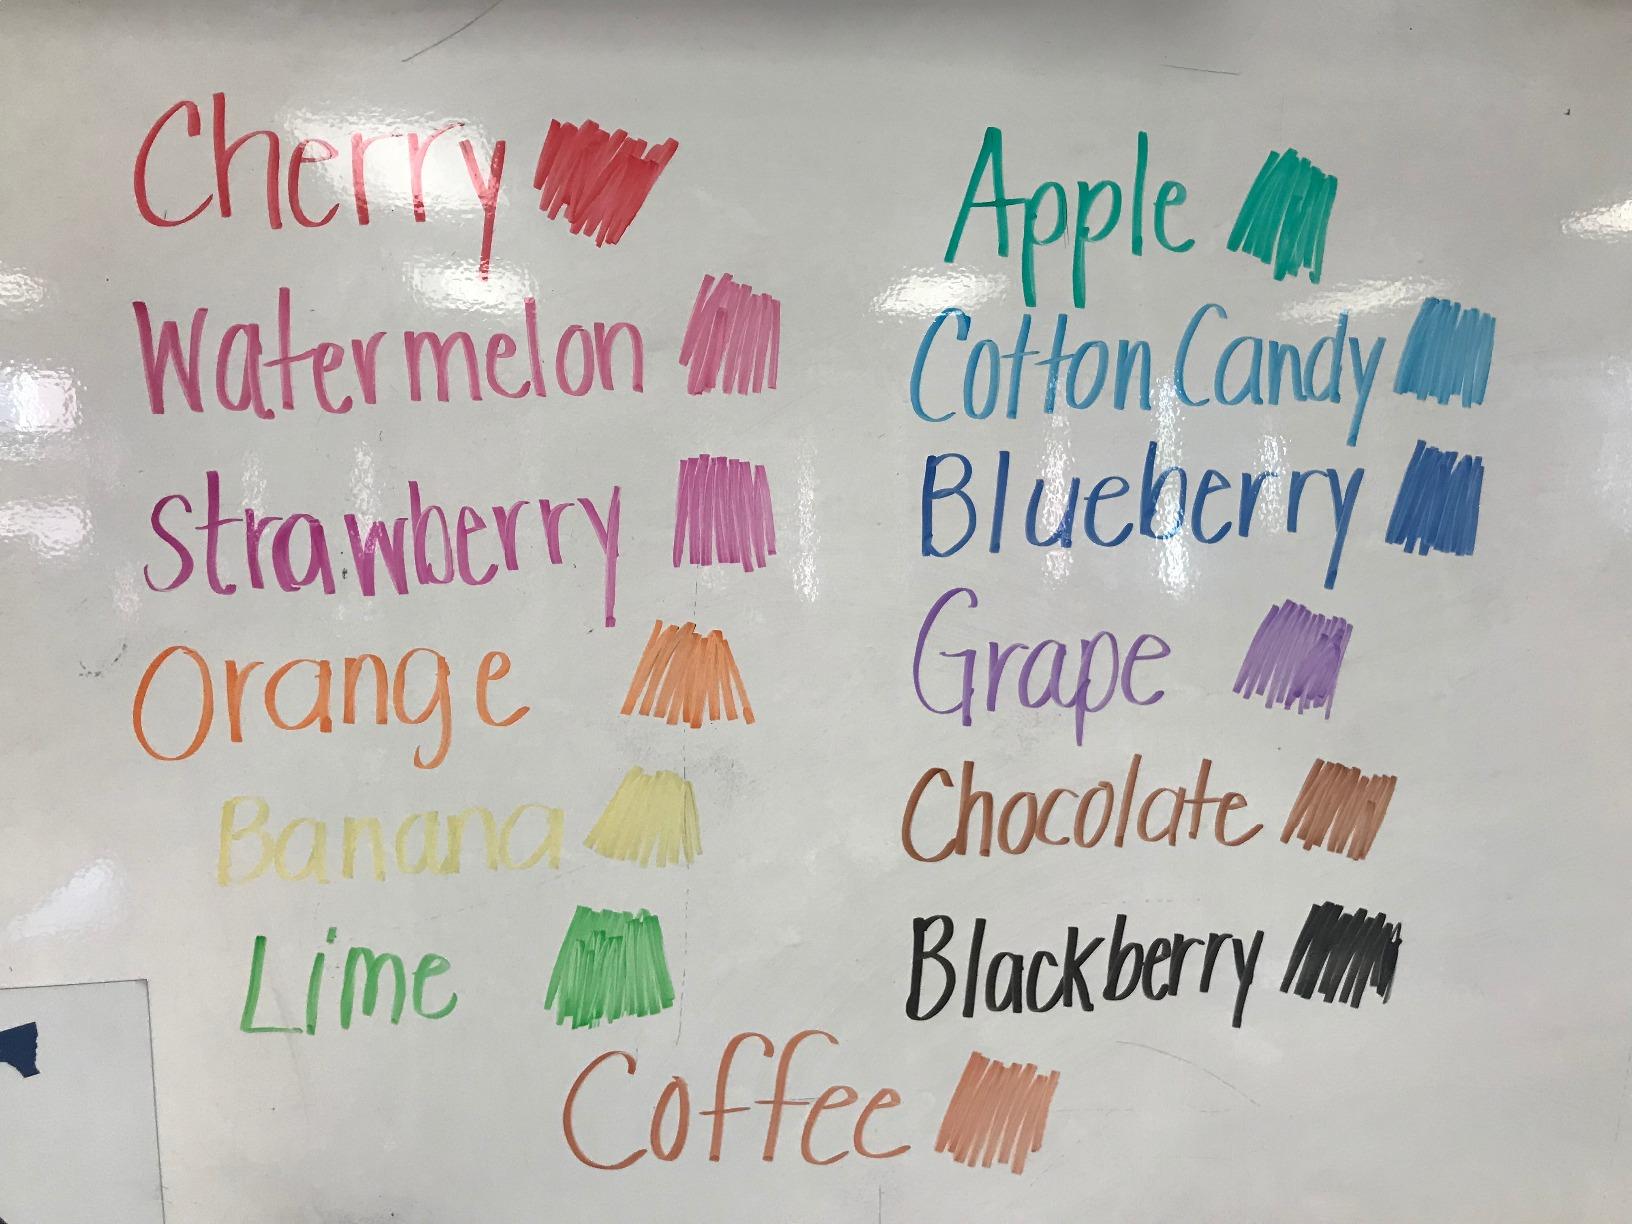 Cherry
Watermelon
Strawberry
Orange
Banana
Lime
Apple
Cotton Candy
Blueberry
Grape
Chocolate
Blackberry
Coffee